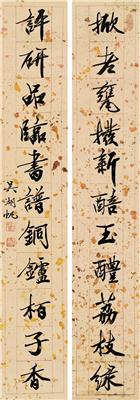 掀老甕撥新醅玉醴荔枝綠
評研品臨書譜銅鑪栢子香
吴湖帆